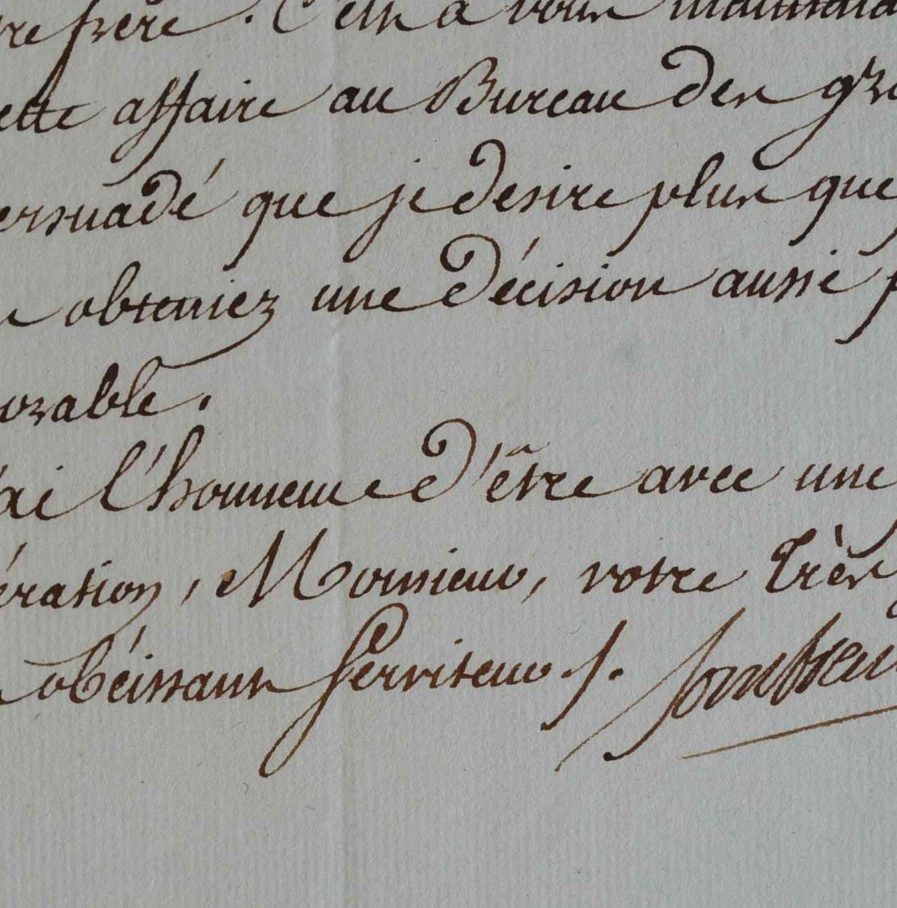 re frère. C'est à vous maintena
ette affaire au Bureau des gra
ersuadé que je desire plus que
obteniez une décision aussi f
orable.
ai l'honneur d'être avec une
ération, Monsieur, votre très
obéissant Serviteur ./. Sombreui